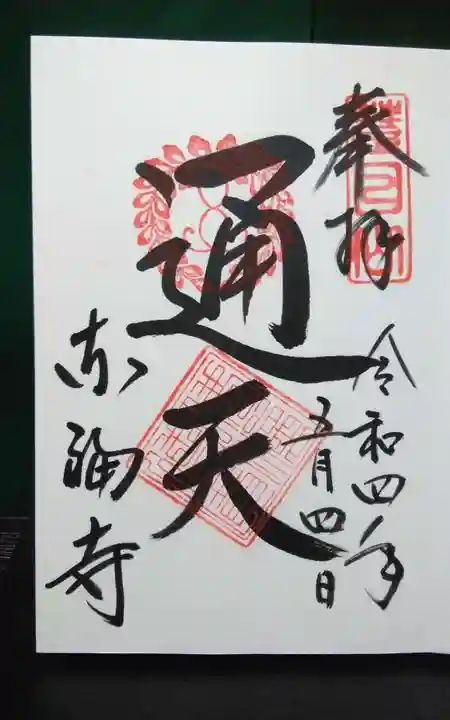 奉拝
令和四年
五月四日
通天
东福寺